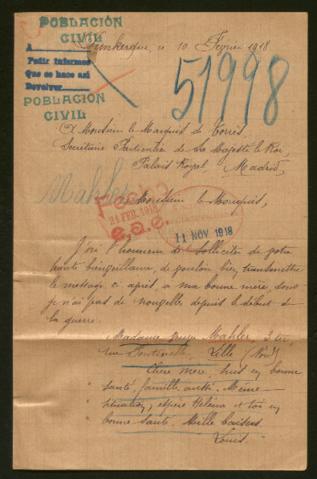 POBLACIÓN
CIVIL
A
Pedir informes
Que se hace así
Devolver
POBLACIÓN
CIVIL
Dunkerque, le 10 Février 1918
51998
A Monsieur le Marquis de Torres,
Secrétaire Particulier de Sa Majesté le Roi,
Palais Royal, Madrid,
Mahler
Monsieur le Marquis,
21 FEB. 1918
11 NOV 1918
J'ai l'honneur de solliciter de votre
haute bienveillance, de vouloir bien transmettre
le message ci après, à ma bonne mère, dont
je n'ai pas de nouvelle depuis le début de
la guerre.
Madame Mahler, 3
rue Lille (Nord)
Chère mère, suis en bonne
santé, famille aussi. Même
situation, espère Hélène et toi en
bonne santé. Mille baisers.
Louis.